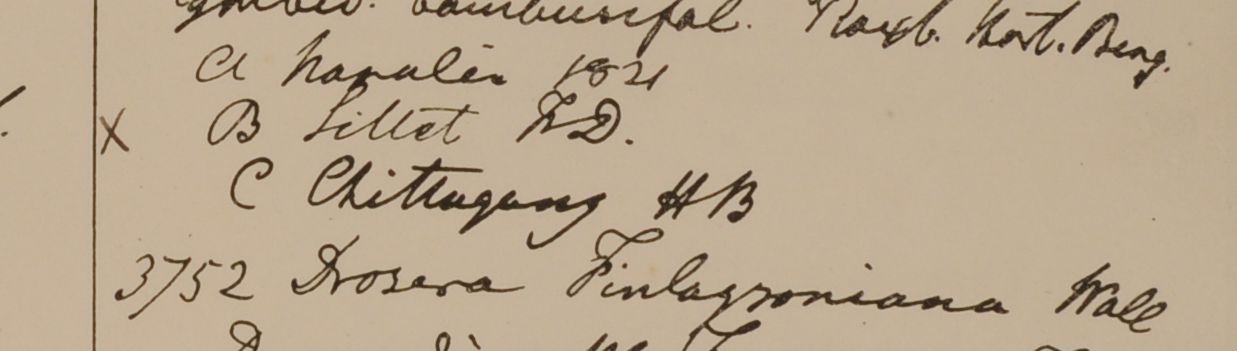 Roxb. Hort. Beng.
a Napalia 1821
X B Sillet F.D.
C Chittagong HB
3752 Drosera Finlaysoniana Wall